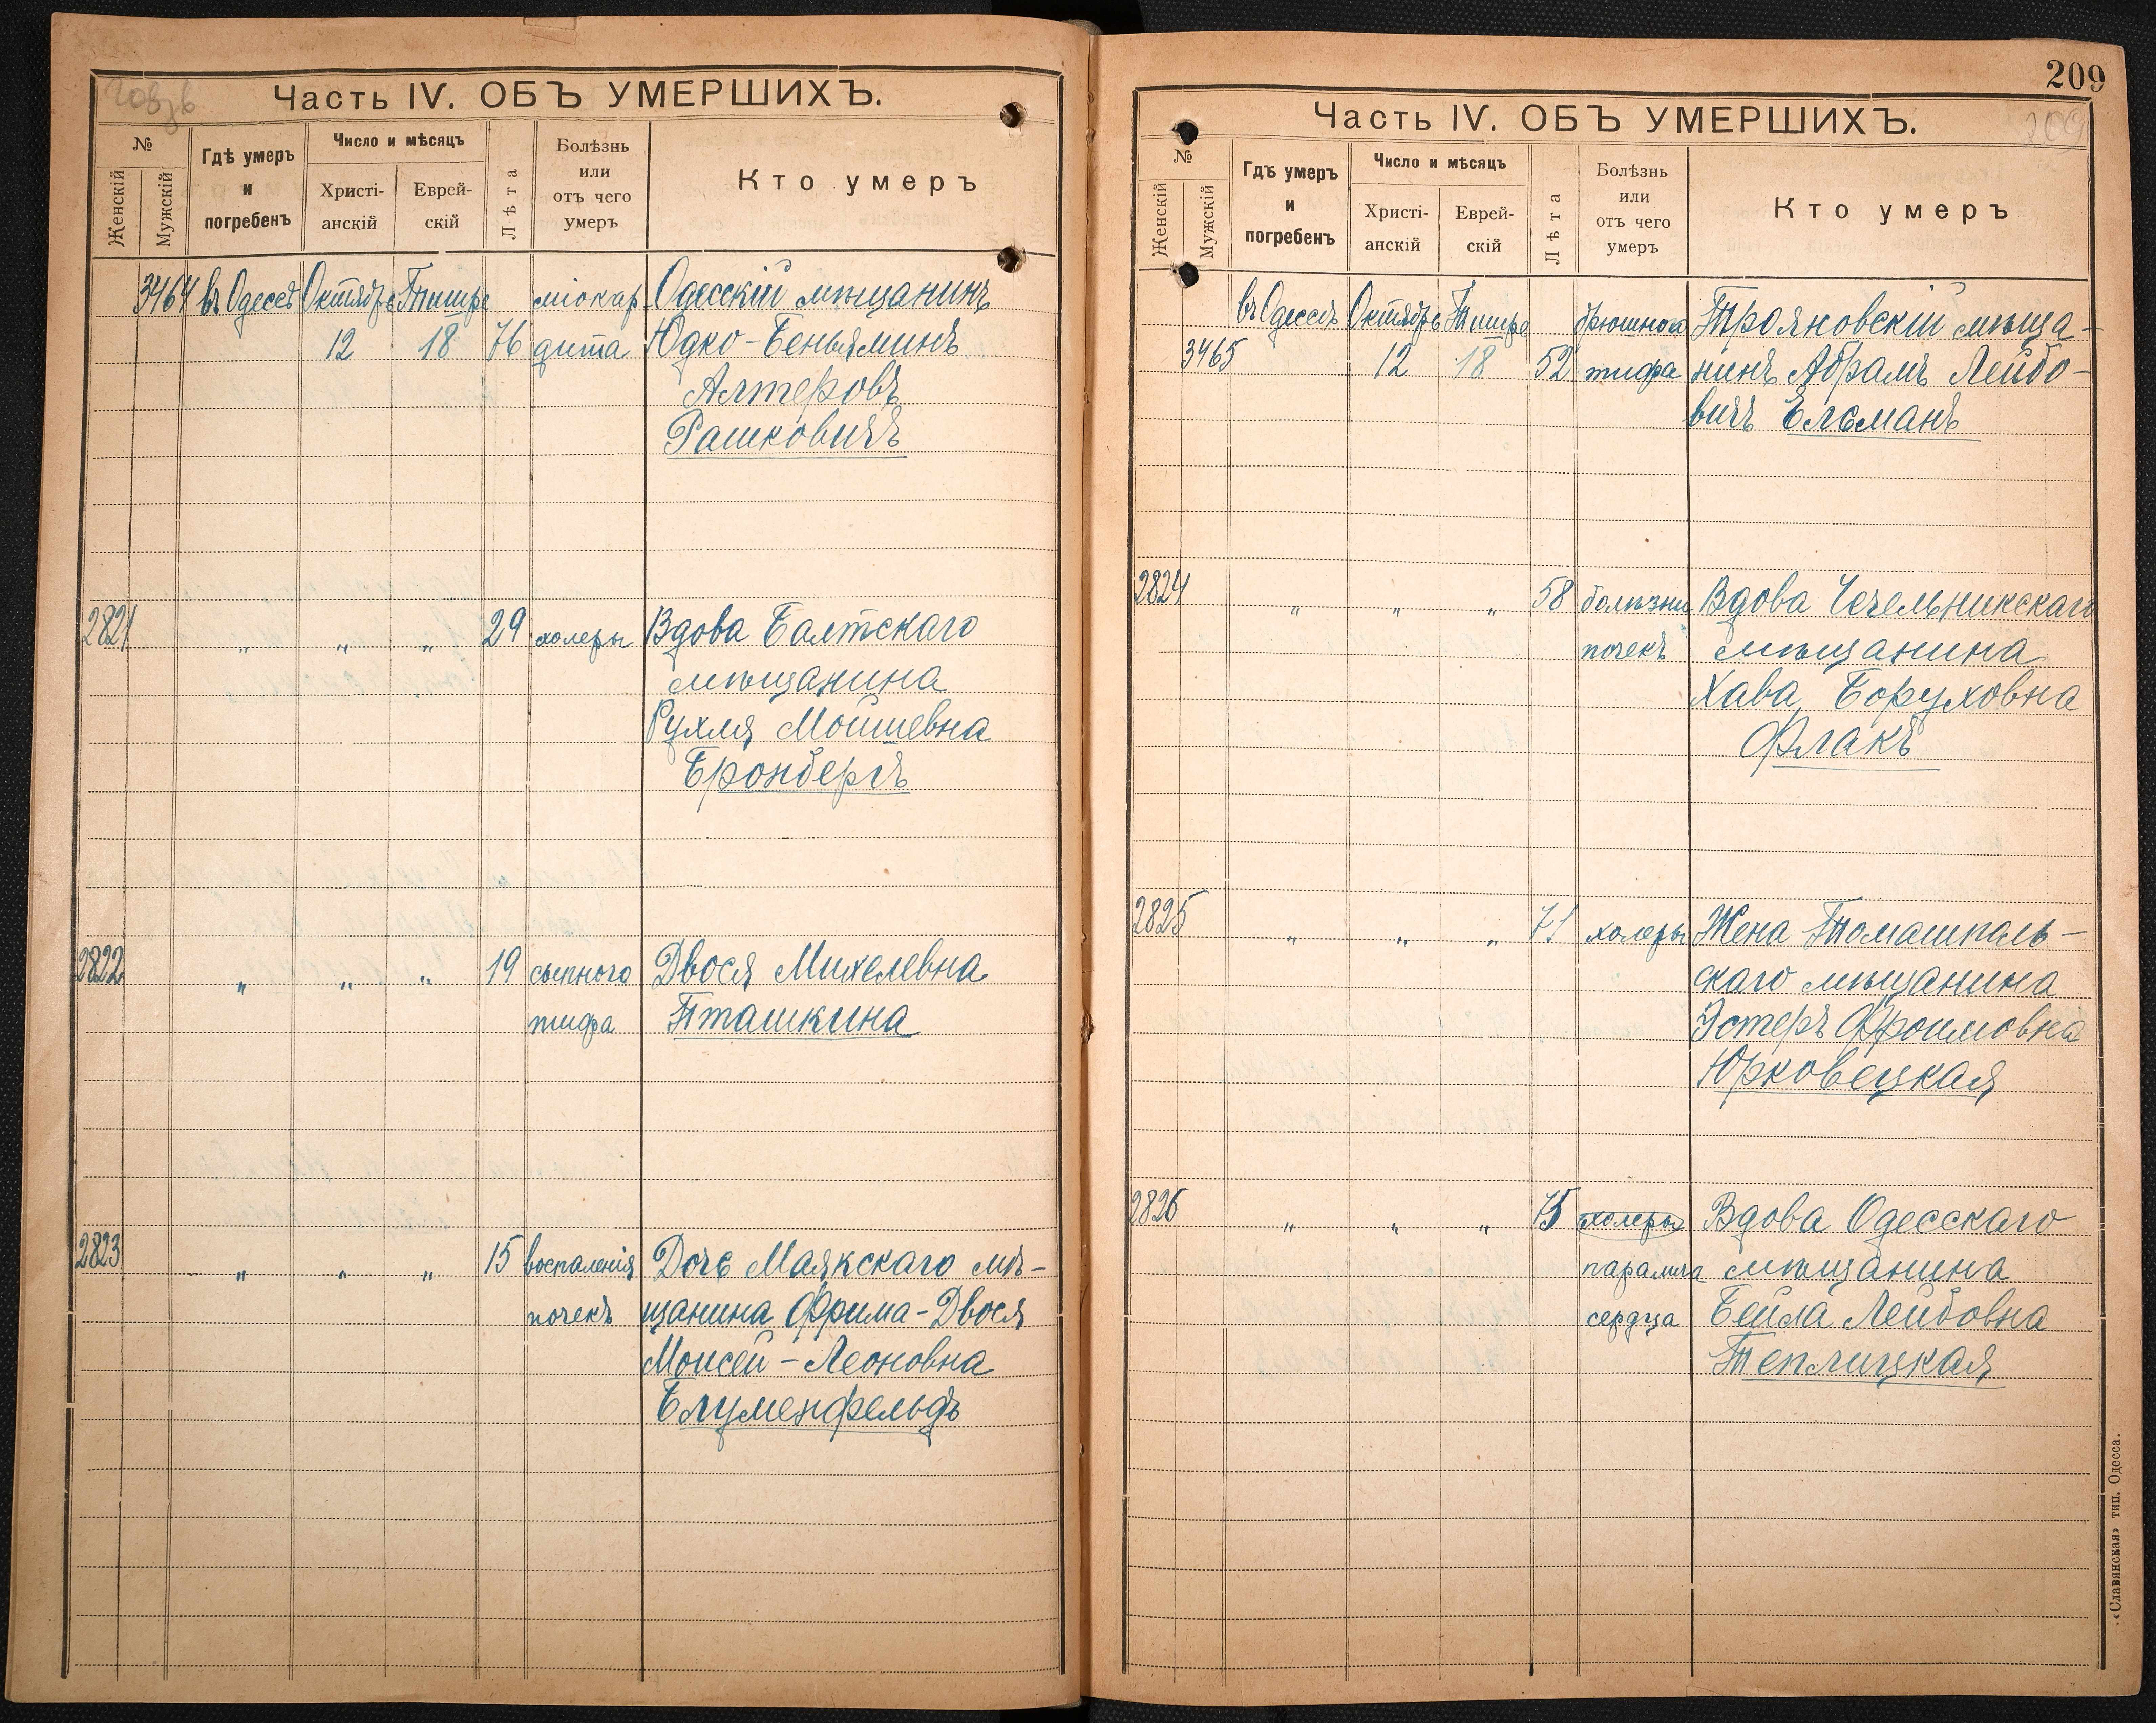 208 зв
Часть IV. ОБЪ УМЕРШИХЪ.
№
Женскій
Мужскій
Гдѣ умеръ и погребенъ
Число и мѣсяцъ
Христіанскій
Еврейскій
Лѣта
Болѣзнь или отъ чего умеръ
Кто умеръ
3464 въ Одессѣ Октябрь Тишре міокар Одесскій мѣщанинъ
12 18 76 дита Юдко-Беньяминъ
Алтеровъ
Рашковичъ
2821 " " " 29 холеры Вдова Балтскаго
мѣщанина
Рухля Мошевна
Бронбергъ
2822 " " " 19 сыпного Двося Михелевна
тифа Пташкина
2823 " " " 15 воспаленія Дочь Маякскаго мѣ-
почекъ щанина Фрима-Двося
Моисей-Леоновна
Блуменфельдъ
209
Часть IV. ОБЪ УМЕРШИХЪ.
209
№
Женскій
Мужскій
Гдѣ умеръ и погребенъ
Число и мѣсяцъ
Христіанскій
Еврейскій
Лѣта
Болѣзнь или отъ чего умеръ
Кто умеръ
въ Одессѣ Октябрь Тишре брюшного Трояновскій мѣща-
3465 12 18 52 тифа нинъ Абрамъ Лейбо-
вичъ Ельманъ
2824 " " " 58 болѣзни Вдова Чечельникскаго
почекъ мѣщанина
Хава Боруховна
Флакъ
2825 " " " 71 холеры Жена Томашполь-
скаго мѣщанина
Эстеръ Фроимовна
Юрковецкая
2826 " " " 75 холеры Вдова Одесскаго
паралича мѣщанина
сердца Бейла Лейбовна
Теплицкая
«Славянская» тип. Одесса.